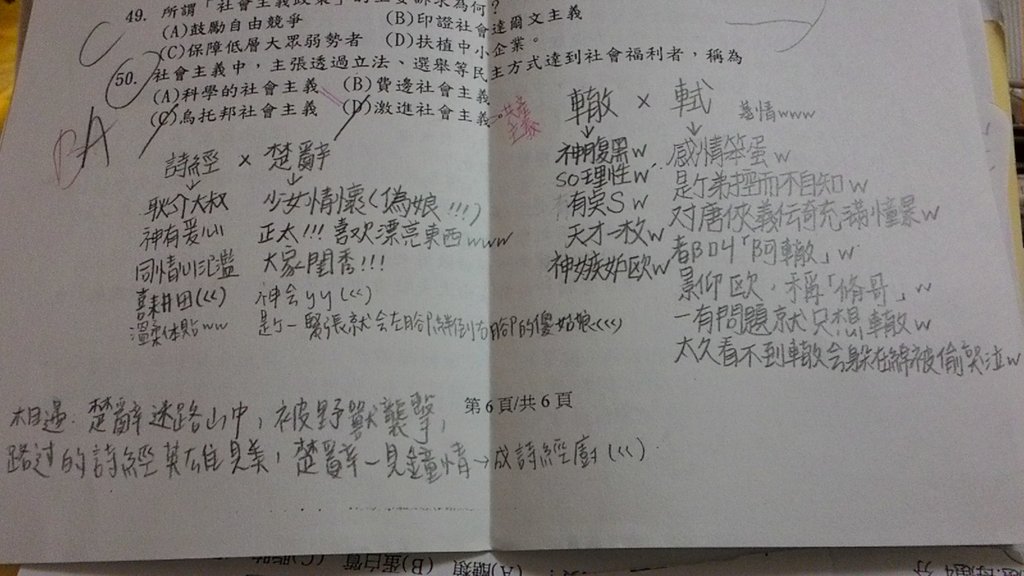 49. 所謂「社會主義政策」的主要訴求為何?
(A)鼓勵自由競爭 (B)印證社會達爾文主義
(C)保障低層大眾弱勢者 (D)扶植中小企業。
C
50. 社會主義中，主張透過立法、選舉等民主方式達到社會福利者，稱為
(A)科學的社會主義 (B)費邊社會主義
(C)烏托邦社會主義 (D)激進社會主義。
共產
主義
A
詩經 × 楚辭
耿介大叔 少女情懷(偽娘!!!)
神有爱心 正太!!! 喜欢漂亮東西www
同情心氾濫 大家閨秀!!!
喜耕田(<<) 神会yy(<<)
溫柔体貼ww 是个一緊張就会左腳絆倒右腳的傻姑娘(<<)
轍 × 軾 基情www
神腹黑w 感情笨蛋w
so理性w 是个弟控而不自知w
有点Sw 对唐俠義伝奇充滿憧景w
天才一枚w 都叫「阿轍」w
神嫉妒欧w 景仰欧，稱「脩哥」w
一有問題就只想轍w
太久看不到轍会躲在綿被偷哭泣w
第6頁/共6頁
相遇: 楚辭迷路山中，被野獸襲擊，
路过的詩經英雄見美，楚辭一見鐘情→成詩經廚(<<)
(A)醣類 (B)蛋白質 (C)脂肪